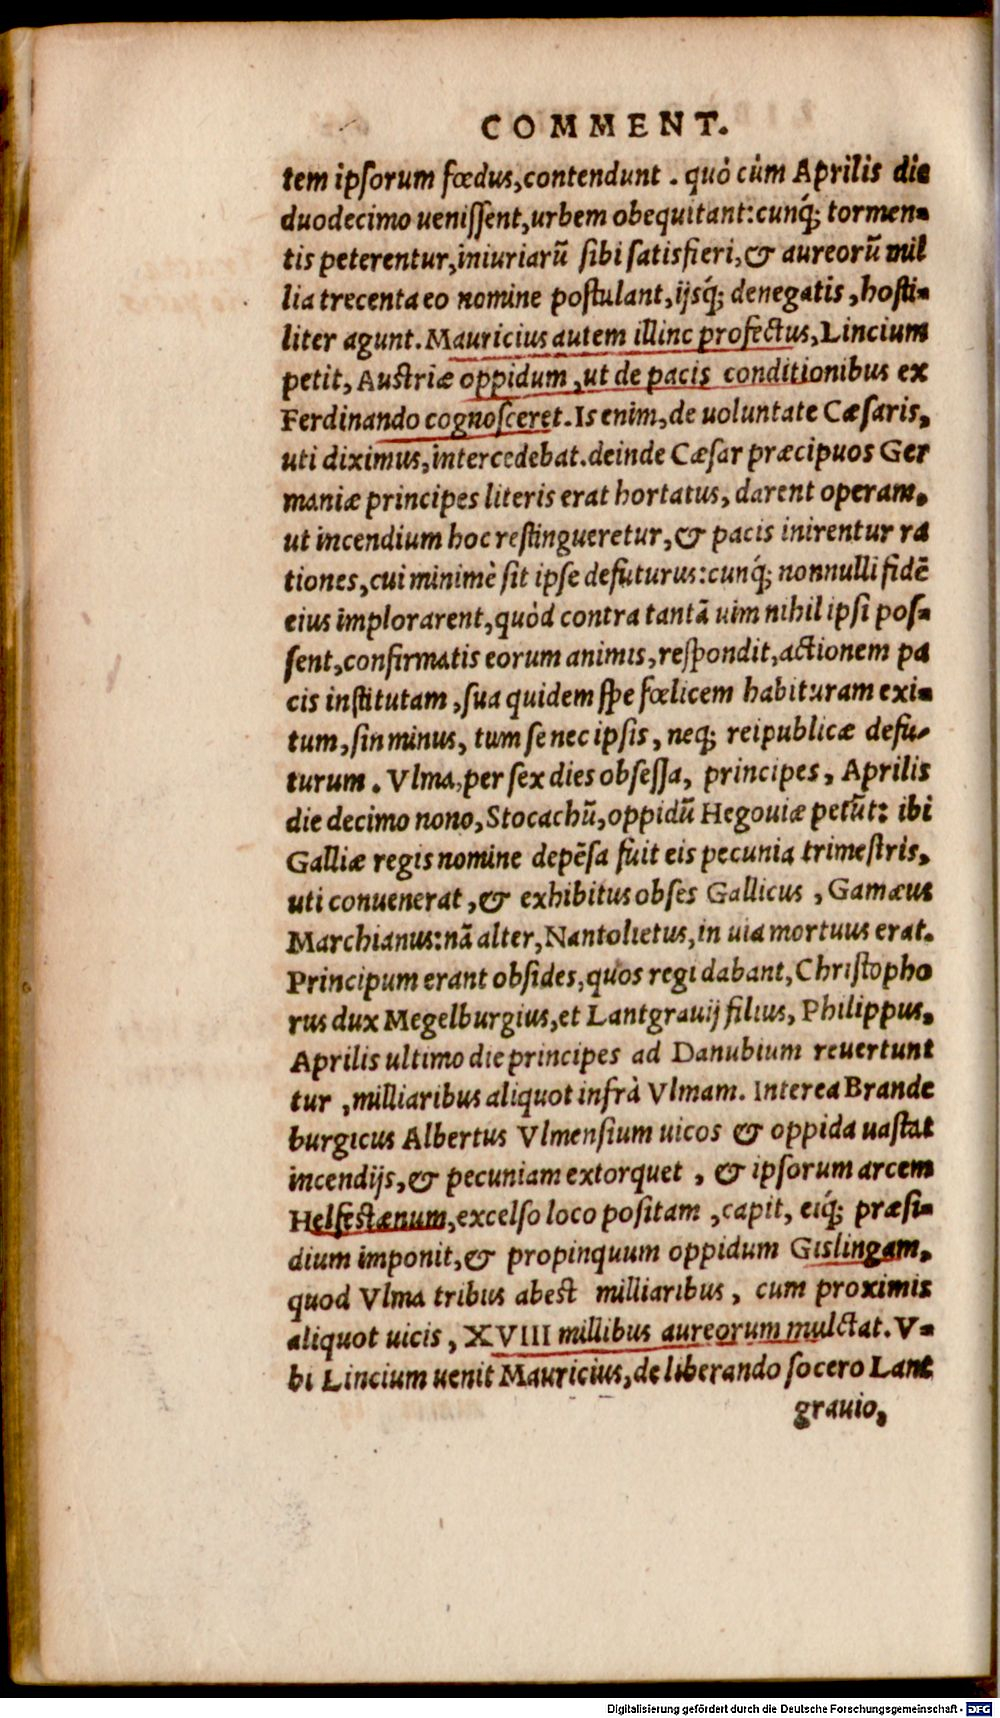 COMMENT.
tem ipsorum fœdus, contendunt. quò cùm Aprilis die
duodecimo uenissent, urbem obequitant: cunq́; tormen-
tis peterentur, iniuriarũ sibi satisfieri, & aureorũ mil
lia trecenta eo nomine postulant, ijsq́; denegatis, hosti-
liter agunt. Mauricius autem illinc profectus, Lincium
petit, Austriæ oppidum, ut de pacis conditionibus ex
Ferdinando cognosceret. Is enim, de uoluntate Cæsaris,
uti diximus, intercedebat. deinde Cæsar præcipuos Ger
maniæ principes literis erat hortatus, darent operam,
ut incendium hoc restingueretur, & pacis inirentur ra
tiones, cui minimè sit ipse defuturus: cunq́; nonnulli fidẽ
eius implorarent, quòd contra tantã uim nihil ipsi pos-
sent, confirmatis eorum animis, respondit, actionem pa
cis institutam, sua quidem spe fœlicem habituram exi-
tum, sin minus, tum se nec ipsis, neq; reipublicæ defu-
turum. Vlma, per sex dies obsessa, principes, Aprilis
die decimo nono, Stocachũ, oppidũ Hegouiæ petũt: ibi
Galliæ regis nomine depẽsa fuit eis pecunia trimestris,
uti conuenerat, & exhibitus obses Gallicus, Gamæus
Marchianus: nã alter, Nantolietus, in uia mortuus erat.
Principum erant obsides, quos regi dabant, Christopho
rus dux Megelburgius, et Lantgrauij filius, Philippus.
Aprilis ultimo die principes ad Danubium reuertunt
tur, milliaribus aliquot infrà Vlmam. Interea Brande
burgicus Albertus Vlmensium uicos & oppida uastat
incendijs, & pecuniam extorquet, & ipsorum arcem
Helfestænum, excelso loco positam, capit, eiq́; præsi-
dium imponit, & propinquum oppidum Gislingam,
quod Vlma tribus abest milliaribus, cum proximis
aliquot uicis, XVIII millibus aureorum mulctat. V-
bi Lincium uenit Mauricius, de liberando socero Lant
grauio,
Digitalisierung gefördert durch die Deutsche Forschungsgemeinschaft - DFG